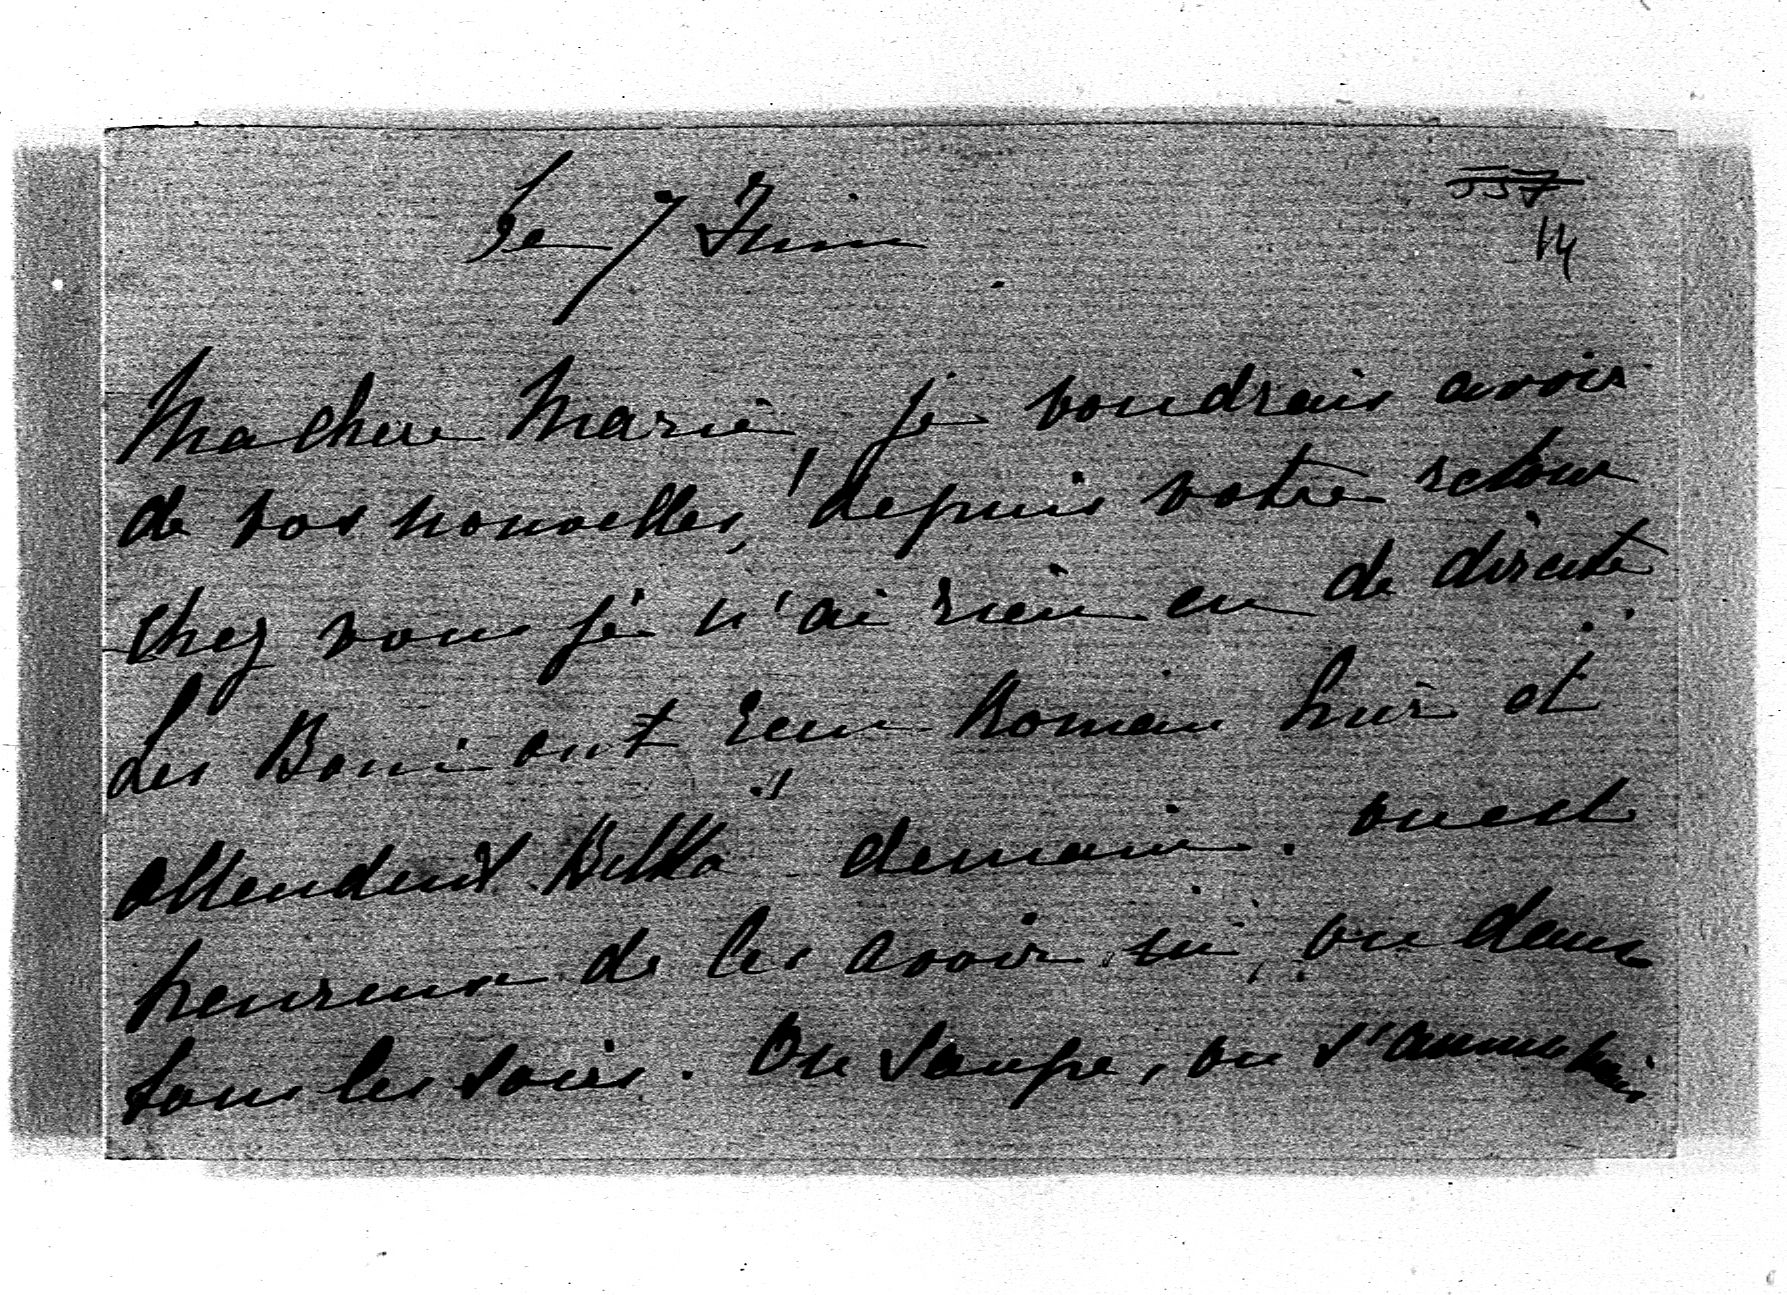 Le 7 Juin
557
14
Ma chere Marie, je voudrais avoir
de vos nouvelles, depuis votre retour
chez vous je n'ai rien eu de directe
Les Boni ont reçu Romain hier et
attendent Bella demain. on est
heureux de les avoir ici, on danse
tous les soirs. On soupe, on s'amuse